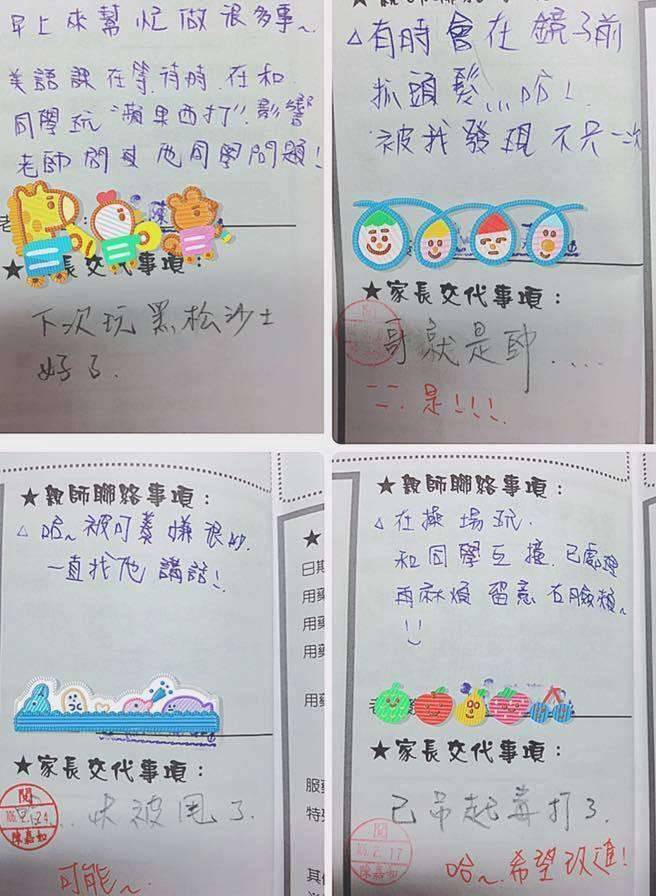 早上來幫忙做很多事~
美語課在等待時.在和
同學玩"蘋果西打"!影響
老師問其他同學問題!
老
陳
★家長交代事項:
下次玩黑松沙士
好了.
△有時會在鏡子前
抓頭髮...哈!
被我發現不只一次
★家長交代事項:
哥就是帥....
ㄈㄈ.是!!!.
★親師聯絡事項:
△哈~被可蓁嫌很吵.
一直找他講話!
★家長交代事項:
...快被甩了.
閱
陳嘉如
可能~.
★
日期
用藥
用藥
用藥
用藥
服藥
特殊
其他
★親師聯絡事項:
△在操場玩.
和同學互撞.已處理
再麻煩留意右臉頰~
老
★家長交代事項:
已吊起毒打了.
閱
陳嘉如
哈~.希望改進!